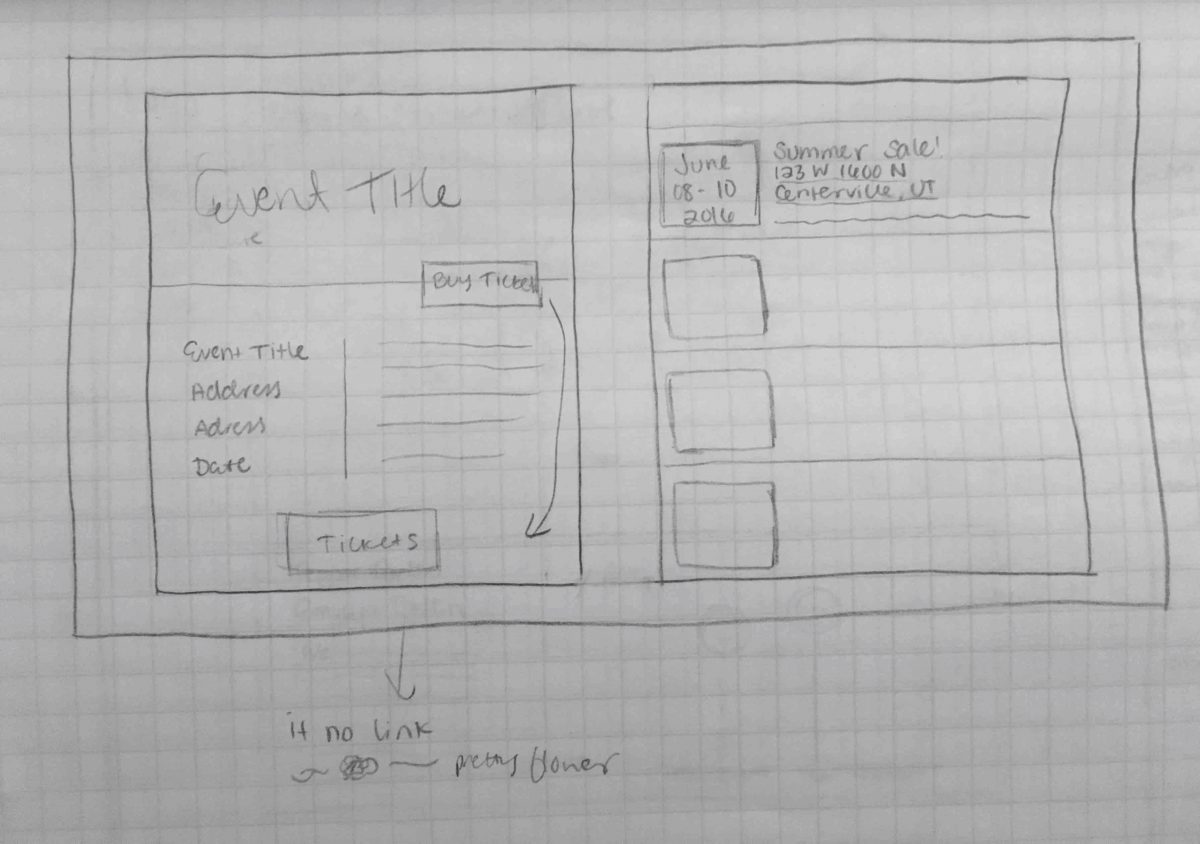 Event Title
Buy Ticket
Event Title
Address
Adress
Date
Tickets
June
08-10
2016
Summer Sale!
123 W 1600 N
Centerville, UT
if no link
pretty flower